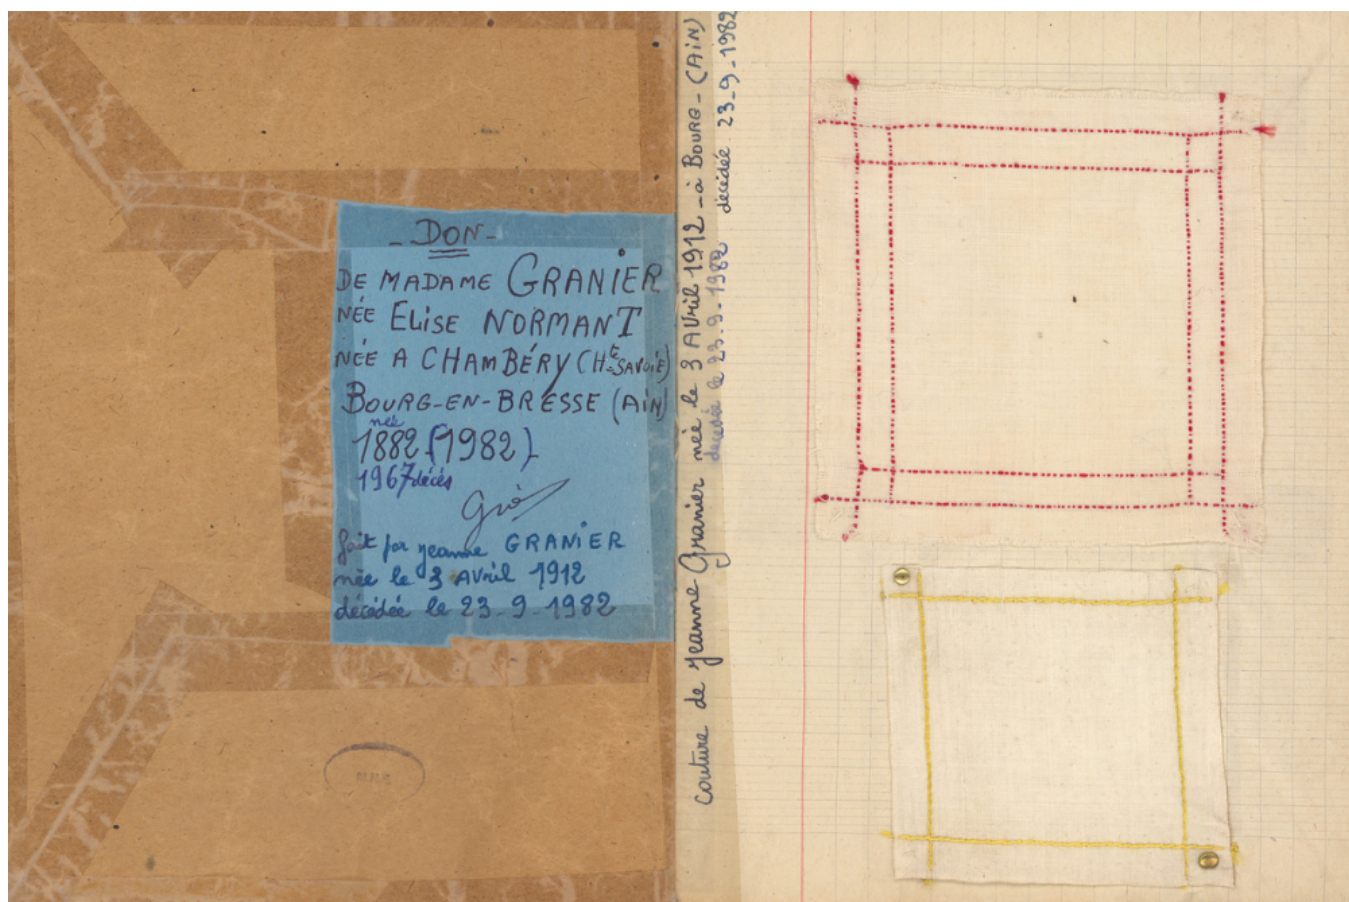 - DON -
DE MADAME GRANIER
NÉE ELISE NORMANT
NÉE A CHAMBÉRY (Hte SAVOIE)
BOURG-EN-BRESSE (AIN)
née
1882 (1982)
1967 décès
fait par jeanne GRANIER
née le 3 AVril 1912
décédée le 23-9-1982
couture de jeanne Granier née le 3 AVril 1912 - à BOURG - (AIN)
décédée le 23.9.1982
décédée 23-9-1982